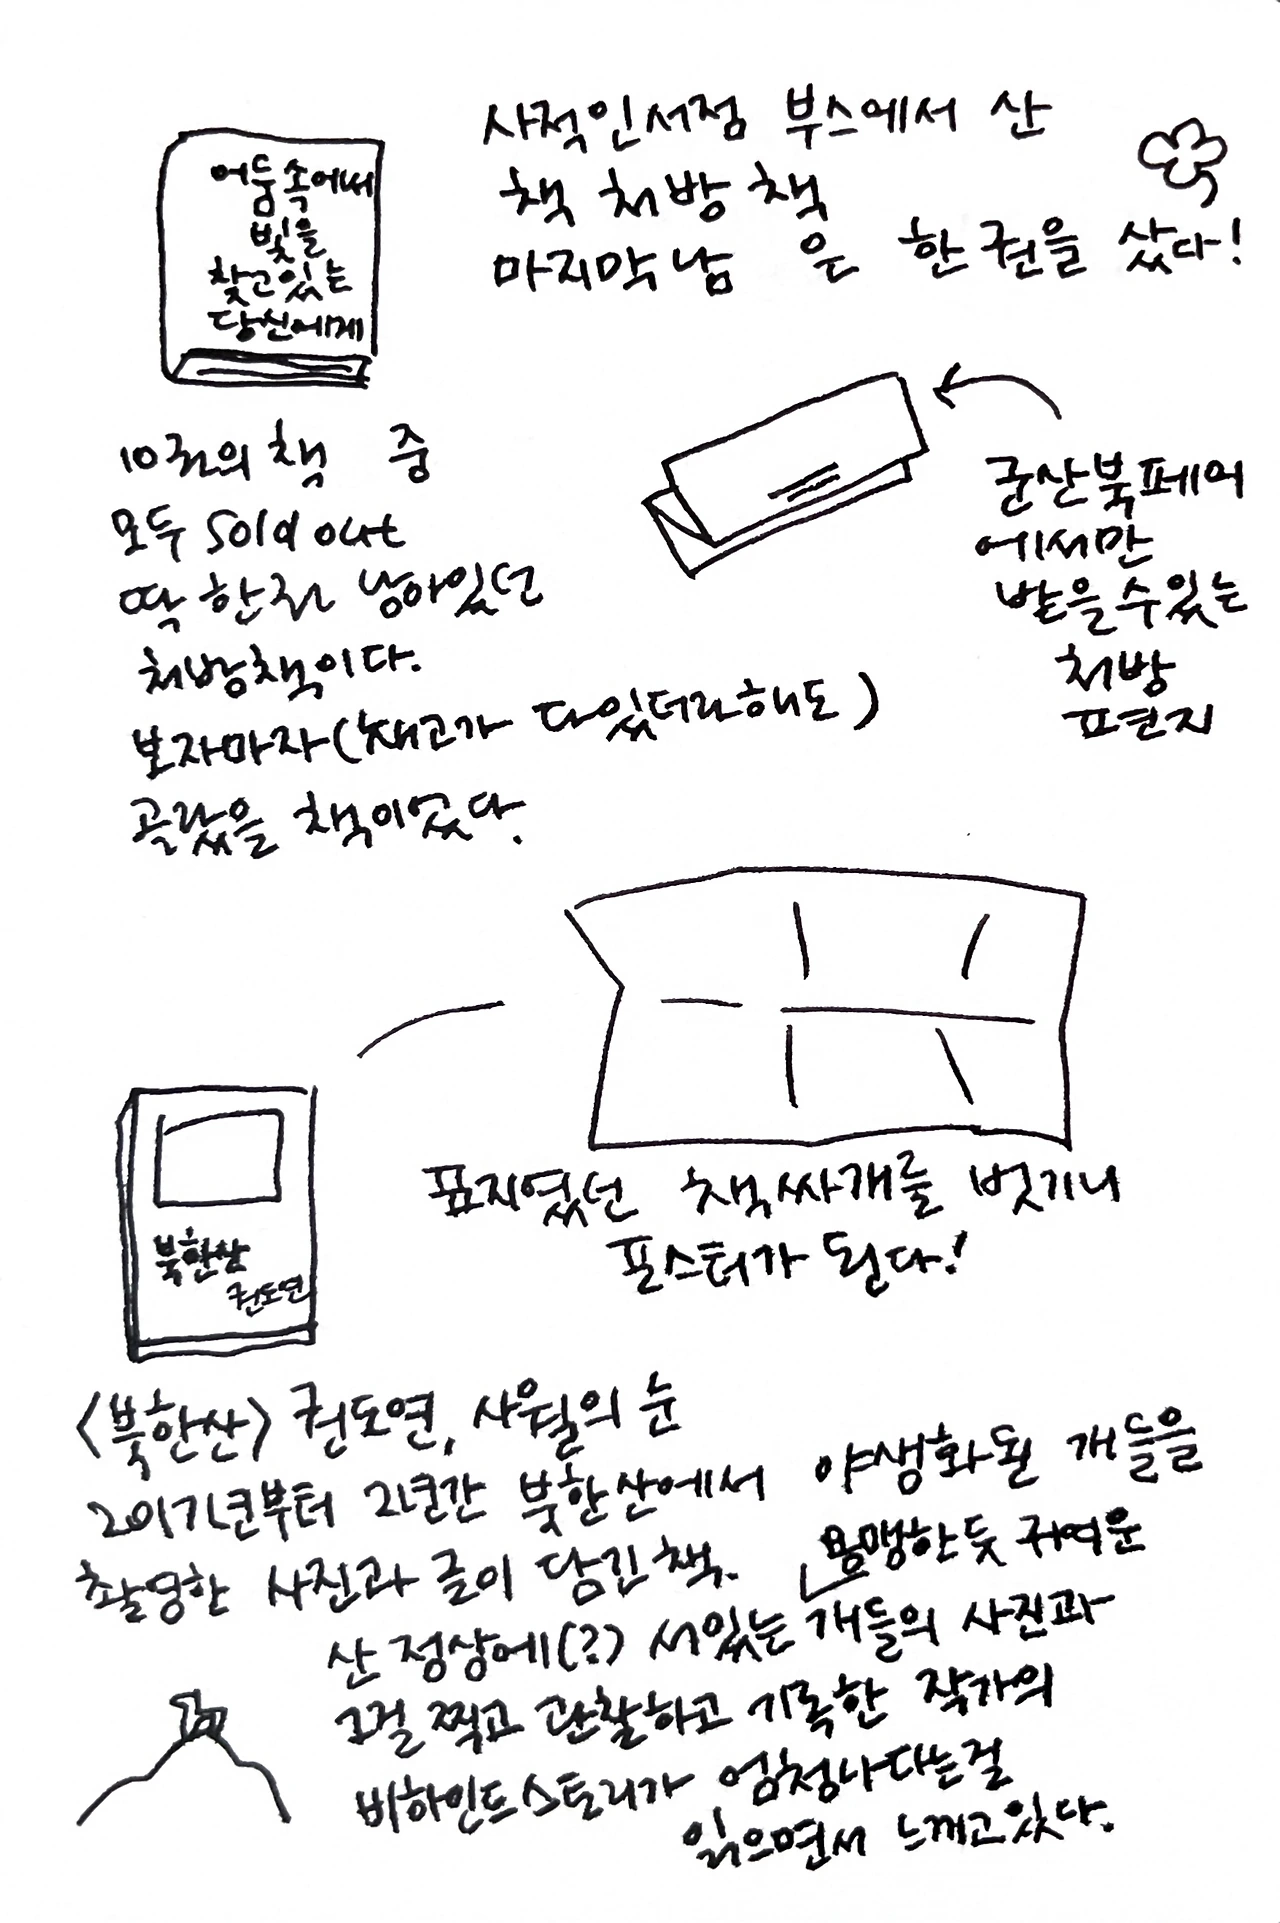 사적인서점 부스에서 산
책 처방 책
마지막 남은 한 권을 샀다!
어둠속에서
빛을
찾고있는
당신에게
10권의 책 중
모두 Sold out
딱 한권 남아있던
처방책이다.
보자마자(재고가 다있더라해도)
골랐을 책이었다.
군산북페어
에서만
받을수있는
처방
편지
표지였던 책싸개를 벗기니
포스터가 된다!
북한산
권도연
<북한산> 권도연, 사월의 눈
2017년부터 2년간 북한산에서 야생화된 개들을
촬영한 사진과 글이 담긴 책.
용맹한듯 귀여운
산 정상에(?) 서있는 개들의 사진과
그걸 찍고 관찰하고 기록한 작가의
비하인드스토리가 엄청나다는걸
읽으면서 느끼고있다.